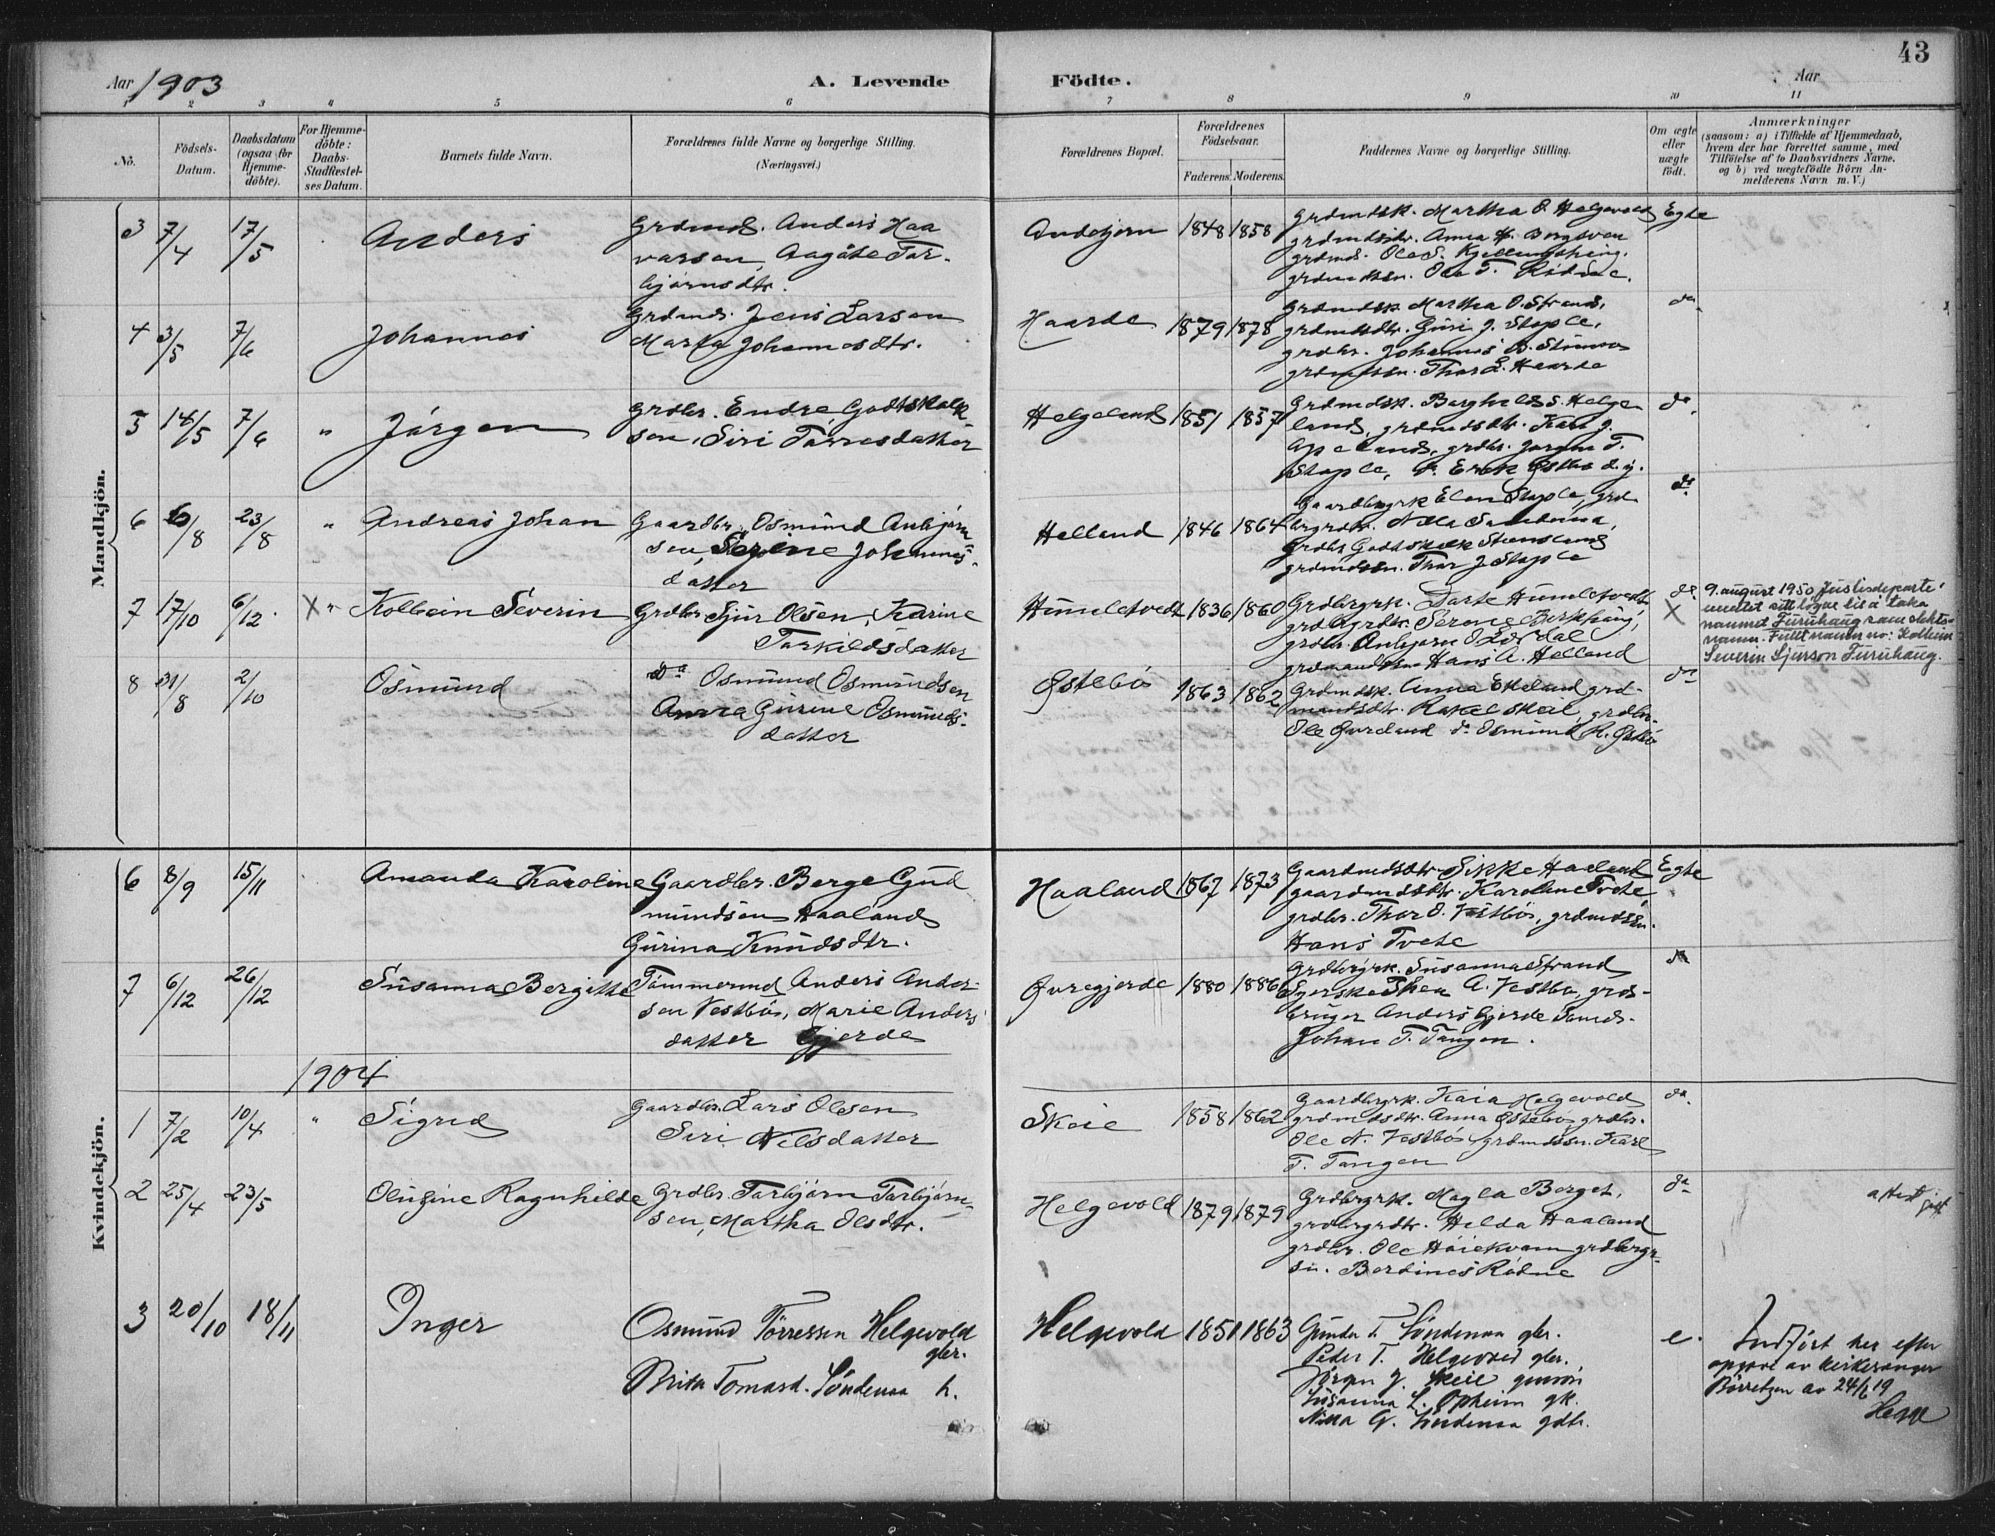 43
Aar 1903
A. Levende Födte.
Aar
1 2 3 4 5 6 7 8 9 10 11
No.
Födsels-Datum.
Daabsdatum (ogsaa for Hjemme-döbte).
For Hjemme-döbte: Daabs-Stadfæstel-ses Datum.
Barnets fulde Navn.
Forældrenes fulde Navne og borgerlige Stilling.
(Næringsvei.)
Forældrenes Bopæl.
Forældrenes Födselsaar.
Faderens. Moderens.
Faddernes Navne og borgerlige Stilling.
Om ægte eller uægte födt.
Anmærkninger
(saasom: a) i Tilfælde af Hjemmedaab, hvem der har forrettet samme, med Tilföielse af to Daabsvidners Navne, og b) ved uægtefödte Börn An-melderens Navn m. V.)
Mandkjön.
3 7/4 17/5 Anders
Grdmd. Anders Haa
varsen, Aagåte Tor-
bjørnsdtr.
Andbjorn 1848 1858
Grdmdsk. Martha O. Helgevold
grdmdsdtr. Anna H. Bergsven
grdmd. Ole S.
grdmdssn. Ole T. Rødne.
Egte
4 3/5 7/6 Johannes
Grdmd. Jens Larsen
Marta Johannesdtr.
Haarde 1879 1878
Grdmdsk. Martha O. Strand,
grdmdsdtr. Guri J. Stople,
grdbr. Johannes B.
grdmdssn. Thor L. Haarde
do
5 14/5 7/6 " Jörgen
Grdbr. Endre Godtskalk
sen, Siri Tørresdatter
Helgeland 1851 1857
Grdmdsk. Borghild S. Helge
land, grdmdsdtr. Kari J.
Apeland, grdbr. Jorgen T.
Stople,
do.
6 6/8 23/8 " Andreas Johan
Gaardbr. Osmund Anbjørn
sen, Serine Johannes-
datter
Helland 1846 1864
Gaardbrgrk Elen Stople, grd
brgrdtr. Nilla Sandenaa,
Grdbr Godtskalk Stensland
grdmdssn. Thor J Stople
do.
7 17/10 6/12 X " Kolbein Severin
Grdbr Sjur Olsen, Karine
Torkildsdatter
Humletvedt 1836 1860
Grdbrgrk. Dorte Humletvedt,
grdbrgrdtr. Serene Birkhaug,
grdbr. Anbjørn O.
grdmandssn Hans A. Helland
do X
9. august 1950 Justisdeparte-
mentet sitt løgve til å taka
namnet Furuhaug som slekts-
namn. Fullt namn no: Kolbein
Severin Sjurson Furuhaug.
8 31/8 2/10 Osmund
Do Osmund Osmundsen
Anna Gurine Osmunds-
datter
Østebö 1863 1862
Grdmdsk. Anna Ekeland grd-
mandsdtr. Rakel Skeie, grdbr.
Ole Øvreland do Osmund K. Østebö
do
Kvindekjön.
6 8/9 15/11 Amanda Karoline
Gaardbr. Berge Gud
mundsen Haaland
Gurina Knudsdtr.
Haaland 1867 1873
Gaardmdsdtr. Sikke Haaland
gaardmdsdtr. Karoline Tvete,
grdbr. Thor O. Vestbö, grdmdssn.
Hans Tvete
Egte
7 6/12 26/12 Susanna Bergitte
Tømmermd Anders Ander-
sen Vestbö, Marie Anders
datter Gjerde
Øvregjerde 1880 1886
Grdbrgrk. Susanna Strand
Thea A. Vestbö, grd-
bruger Anders Gjerde
Johan T. Tangen.
do
1904
1 7/2 10/4 " Sigrid
Gaardbr. Lars Olsen
Siri Nilsdatter
Skeie 1858 1862
Gaardbrgrk. Kaia Helgevold
grdmdsdtr. Anna Østebö, grdbr.
Ole N. Vestbö, grdmdssn. Karl
T. Tangen
do.
2 25/4 23/5 Olugine Ragnhilde
Grdbr. Torbjørn Torbjørn-
sen, Martha Olsdtr.
Helgevold 1879 1879
Grdbrgrk. Magla Berget,
grdbrgrdtr. Helda Haaland
grdbr. Ole Høiekvam grdbrgr-
sn. Berdines Rødne
do
attest
3 20/10 18/11 Inger
Osmund Törressen Helgevold
gbr.
Brita Tomasd. Söndenaa h.
Helgevold 1851 1863
Gunder T. Söndenaa gbr.
Peder T. Helgevold gbr.
Jörgen J. Skeie
Susanna L. Opheim gk.
Nilla G. Söndenaa gdtr.
e.
Indfört her efter
opgave av kirkesanger
Börretzen av 24/6 19